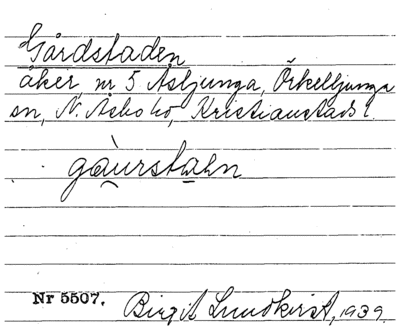 Gårdstaden
åker, nr 5 Åsljunga, Örkelljunga
sn, N. Åsbo hd, Kristianstads l
gàurstahn
Nr 5507. Birgit Lundkvist, 1939.